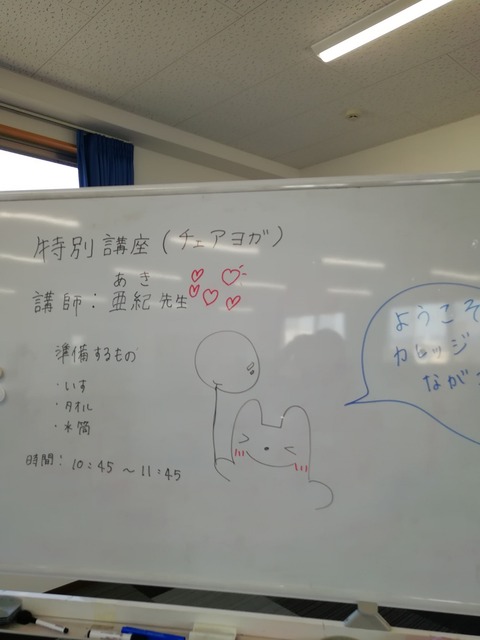 特別講座(チェアヨガ)
あき
講師：亜紀先生
準備するもの
・いす
・タオル
・水筒
時間：10:45～11:45
ようこそ
カレッジ
なが